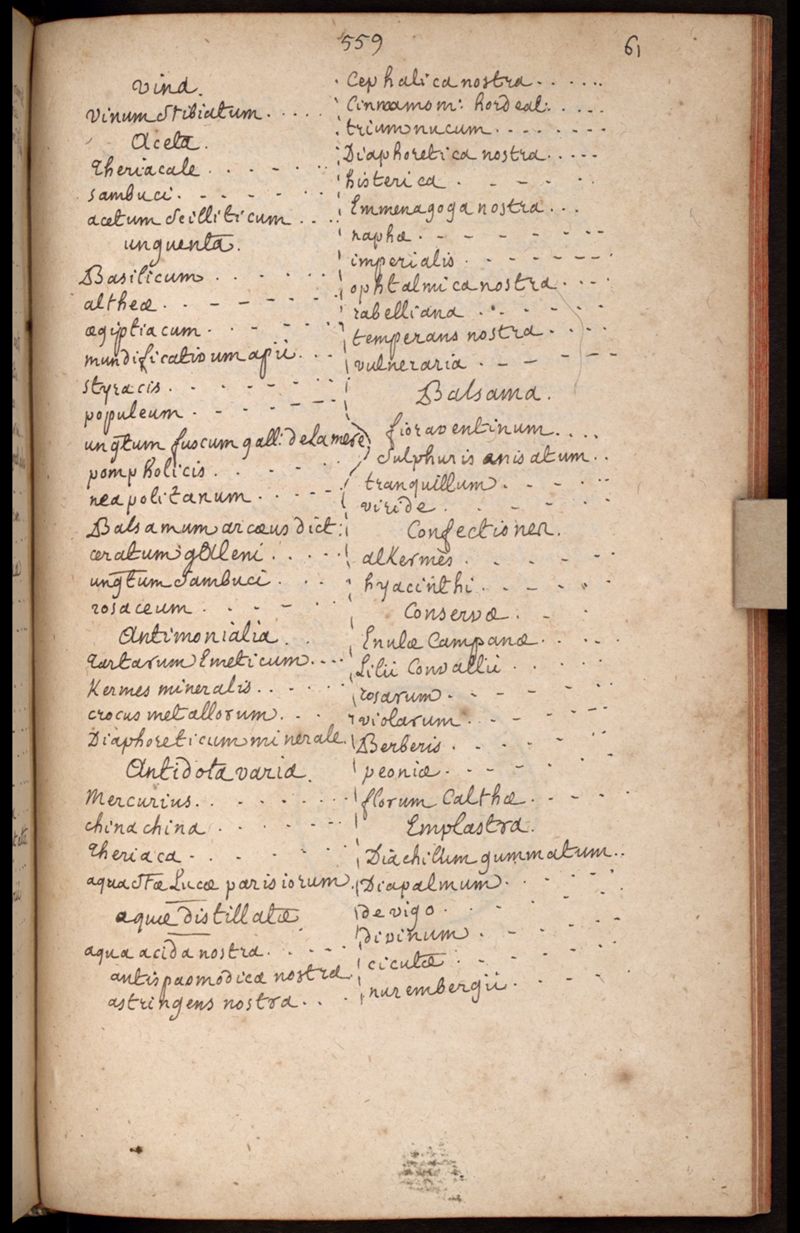 559
61
vina.
vinum stibiatum.....
Aceta.
Theriacale.......
sambuci.......
acetum scilliticum....
unguenta.
Basilicum.....
altheæ.......
ægiptiacum......
mundificativum apii...
styracis.......
populeum.......
ungtum fuscum gall: delamere
pompholicis......
neapolitanum......
Balsamum arcæus dict:
ceratum galleni.....
ungtum sambuci....
rosaceum.....
Antimonialia..
Tartarum Emeticum....
Kermes mineralis.....
crocus metallorum...
Diaphoreticum minerale.
Antidota varia.
Mercurius........
china china......
Theriaca.......
aqua stæ Lucæ parisiorum.
aquæ distillatæ
aqua acida nostra.....
antispasmodica nostra.
astringens nostra...
Cephalica nostra......
Cinnamomi: hordeat:....
trium nucum........
Diaphoretica nostra.....
histerica......
Emmenagoga nostra...
naphæ........
imperialis.......
ophtalmica nostra....
rabelliana......
temperans nostra....
vulneraria.......
Balsama.
fioraventinum....
sulphuris anisatum..
tranquillum.....
viride......
Confectiones.
alKermes......
hyacinthi......
Conservæ...
Enulæ Campanæ....
Lilii Convallii.....
rosarum.......
violarum......
Berberis......
peoniæ.....
florum Calthæ.....
Emplastra.
Diachilum gummatum..
Diapalmum.....
de vigo.....
divinum......
cicutæ......
nurembergii.....